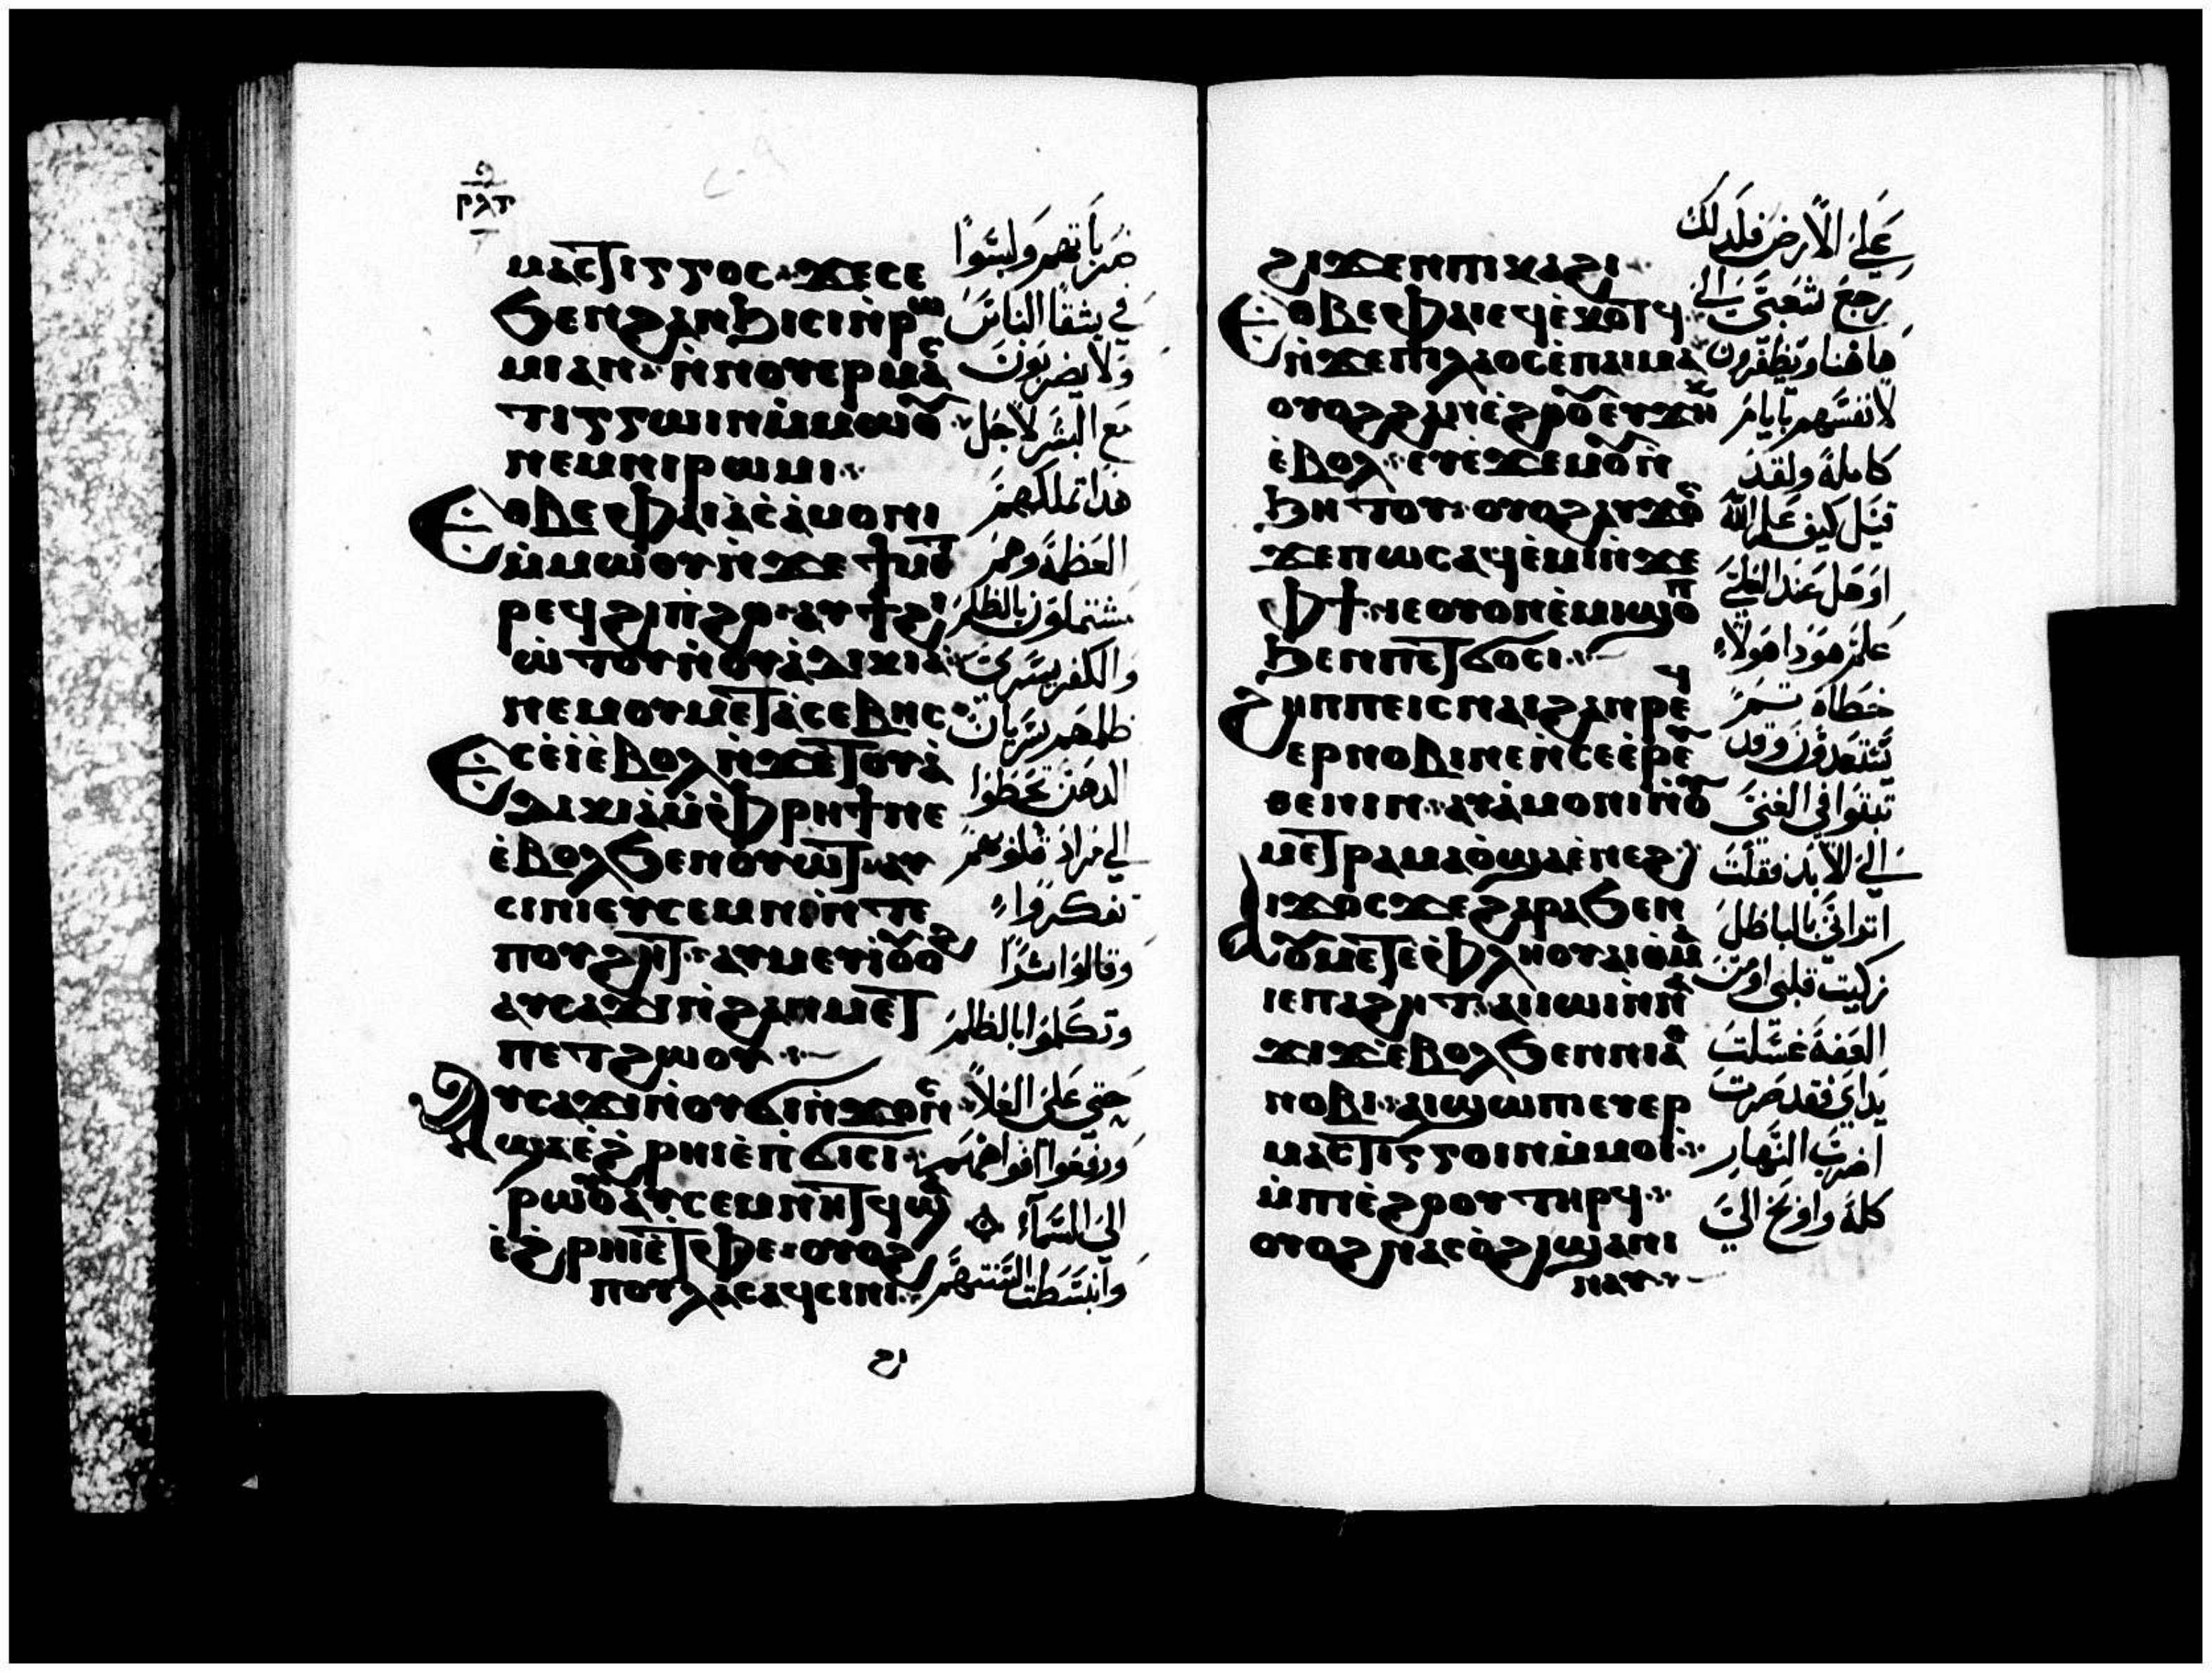 ⲙⲁⲥⲧⲓⲅⲅⲟⲥ ϫⲉⲥⲉ
ϧⲉⲛϩⲁⲛϧⲓⲥⲓⲛ̀ⲣⲱ
ⲙⲓⲁⲛ ⲛ̀ⲛⲟⲩⲉⲣⲙⲁⲥ
ⲧⲓⲅⲅⲱⲓⲛⲙ̀ⲙⲱⲟⲩ
ⲛⲉⲙⲛⲓⲣⲱⲙⲓ
Ⲉⲑⲃⲉⲫⲁⲓⲁⲥⲁ̀ⲙⲟⲛⲓ
ⲙ̀ⲙⲱⲟⲩⲛ̀ϫⲉϯⲙⲉⲧ
ⲣⲉϥϩⲓⲡ̀ϩⲟ ⲁⲩϯϩⲓ
ⲱⲧⲟⲩⲛ̀ⲟⲩⲁ̀ⲇⲓⲕⲓⲁ
ⲛⲉⲙⲟⲩⲙⲉⲧⲁ̀ⲥⲉⲃⲏⲥ
Ⲉⲥⲉ̀ⲓ̀ⲉ̀ⲃⲟⲗⲛ̀ϫⲉⲧⲟⲩⲁ̀
ⲇⲓⲕⲓⲁⲙ̀ⲫⲣⲏϯⲛⲉ
ⲉ̀ⲃⲟⲗϧⲉⲛⲟⲩⲱⲧ ⲁⲩ
ⲥⲓⲛⲓⲉⲩⲥⲉⲙⲛⲓⲛ̀ⲧⲉ
ⲡⲟⲩϩⲏⲧ ⲁⲩⲙⲉⲩⲓ̀ⲟⲩⲟϩ
ⲁⲩⲥⲁϫⲓⲛ̀ϩⲁⲛⲙⲉⲧ
ⲡⲉⲧϩⲱⲟⲩ
Ⲁⲩⲥⲁϫⲓⲛ̀ⲟⲩϭⲓⲛ̀ϫⲟⲛⲥ
ϣⲁⲉ̀ϩⲣⲏⲓⲉ̀ⲡ̀ϭⲓⲥⲓ
ⲣⲱⲟⲩⲁⲩⲥⲉⲙⲛⲏⲧϥϣⲁ
ⲉ̀ϩⲣⲏⲓⲉ̀ⲧⲫⲉ ⲟⲩⲟϩ
ⲡⲟⲩⲗⲁⲥⲁϥⲥⲓⲛⲓ
ضرباتهم وليسوا
في شقا الناس
ولا يضربون
مع البشر لاجل
هذا تملكهم
العظمة وهم
مشتملون بالظلم
والكفر
الدهن تخطوا
الي مراد قلوبهم
تفكروا
وقالوا شرا
وتكلموا بالظلم
حتى على العلا
ورفعوا افواههم
الى السماء
وانبسطت السنتهم
ϩⲓϫⲉⲛⲡⲓⲕⲁϩⲓ
Ⲉⲑⲃⲉⲫⲁⲓⲉϥⲉ̀ⲕⲟⲧϥ
ⲛ̀ϫⲉⲡⲓⲗⲁⲟⲥⲉ̀ⲡⲁⲓⲙⲁ
ⲟⲩⲟϩϩⲁⲛⲉ̀ϩⲟⲟⲩⲉⲩϫⲏⲕ
ⲉ̀ⲃⲟⲗ ⲉⲩⲉ̀ϫⲉⲙⲟⲩⲛ̀
ϧⲏⲧⲟⲩ ⲟⲩⲟϩⲁⲩϫⲟⲥ
ϫⲉⲡⲱⲥⲁϥⲉ̀ⲙⲓⲛ̀ϫⲉ
ⲫϯ ⲛⲉⲟⲩⲟⲛⲉ̀ⲙⲓϣⲟⲡ
ϧⲉⲛⲡⲉⲧϭⲟⲥⲓ
ϩⲏⲡⲡⲉⲓⲥⲛⲁⲓϩⲁⲛⲣⲉϥ
ⲉⲣⲛⲟⲃⲓⲛⲉⲛ̀ⲥⲉⲉ̀ⲣⲉⲩ
ⲑⲉⲛⲓⲛ ⲁⲩⲁ̀ⲙⲟⲛⲓⲛ̀ⲟⲩ
ⲙⲉⲧⲣⲁⲙⲁⲟ̀ϣⲁⲉ̀ⲛⲉϩ
ⲁⲓϫⲟⲥϫⲉϩⲁⲣⲁϧⲉⲛ
ⲟⲩⲙⲉⲧⲉ̀ⲫⲗⲏⲟⲩⲁⲓⲑⲙⲁ
ⲓⲉⲡⲁϩⲏⲧ ⲁⲓⲓⲱⲓⲛ̀ⲛⲁ
ϫⲓϫⲉ̀ⲃⲟⲗϧⲉⲛⲛⲓⲁⲑ
ⲛⲟⲃⲓ ⲁⲓϣⲱⲡⲓⲉⲩⲉⲣ
ⲙⲁⲥⲧⲓⲅⲅⲟⲓⲛⲙ̀ⲙⲟⲓ
ⲙ̀ⲡⲓⲉ̀ϩⲟⲟⲩⲧⲏⲣϥ
ⲟⲩⲟϩⲛⲁⲥⲟ̀ϩⲓϣⲁⲛⲓ
ⲛⲁⲩ
على الارض فلذلك
رجع شعبي الي
هاهنا ويظفرون
لانفسهم بايام
كاملة ولقد
قيل كيف علم الله
او هل عند العلي
علم هوذا هولاء
خطاة
وقد
ثبتوا في الغنى
الى الابد فقلت
اتراني بالباطل
زكيت قلبي
العفة غسلت
يداي فقد صرت
اضرب النهار
كله واوبخ الي